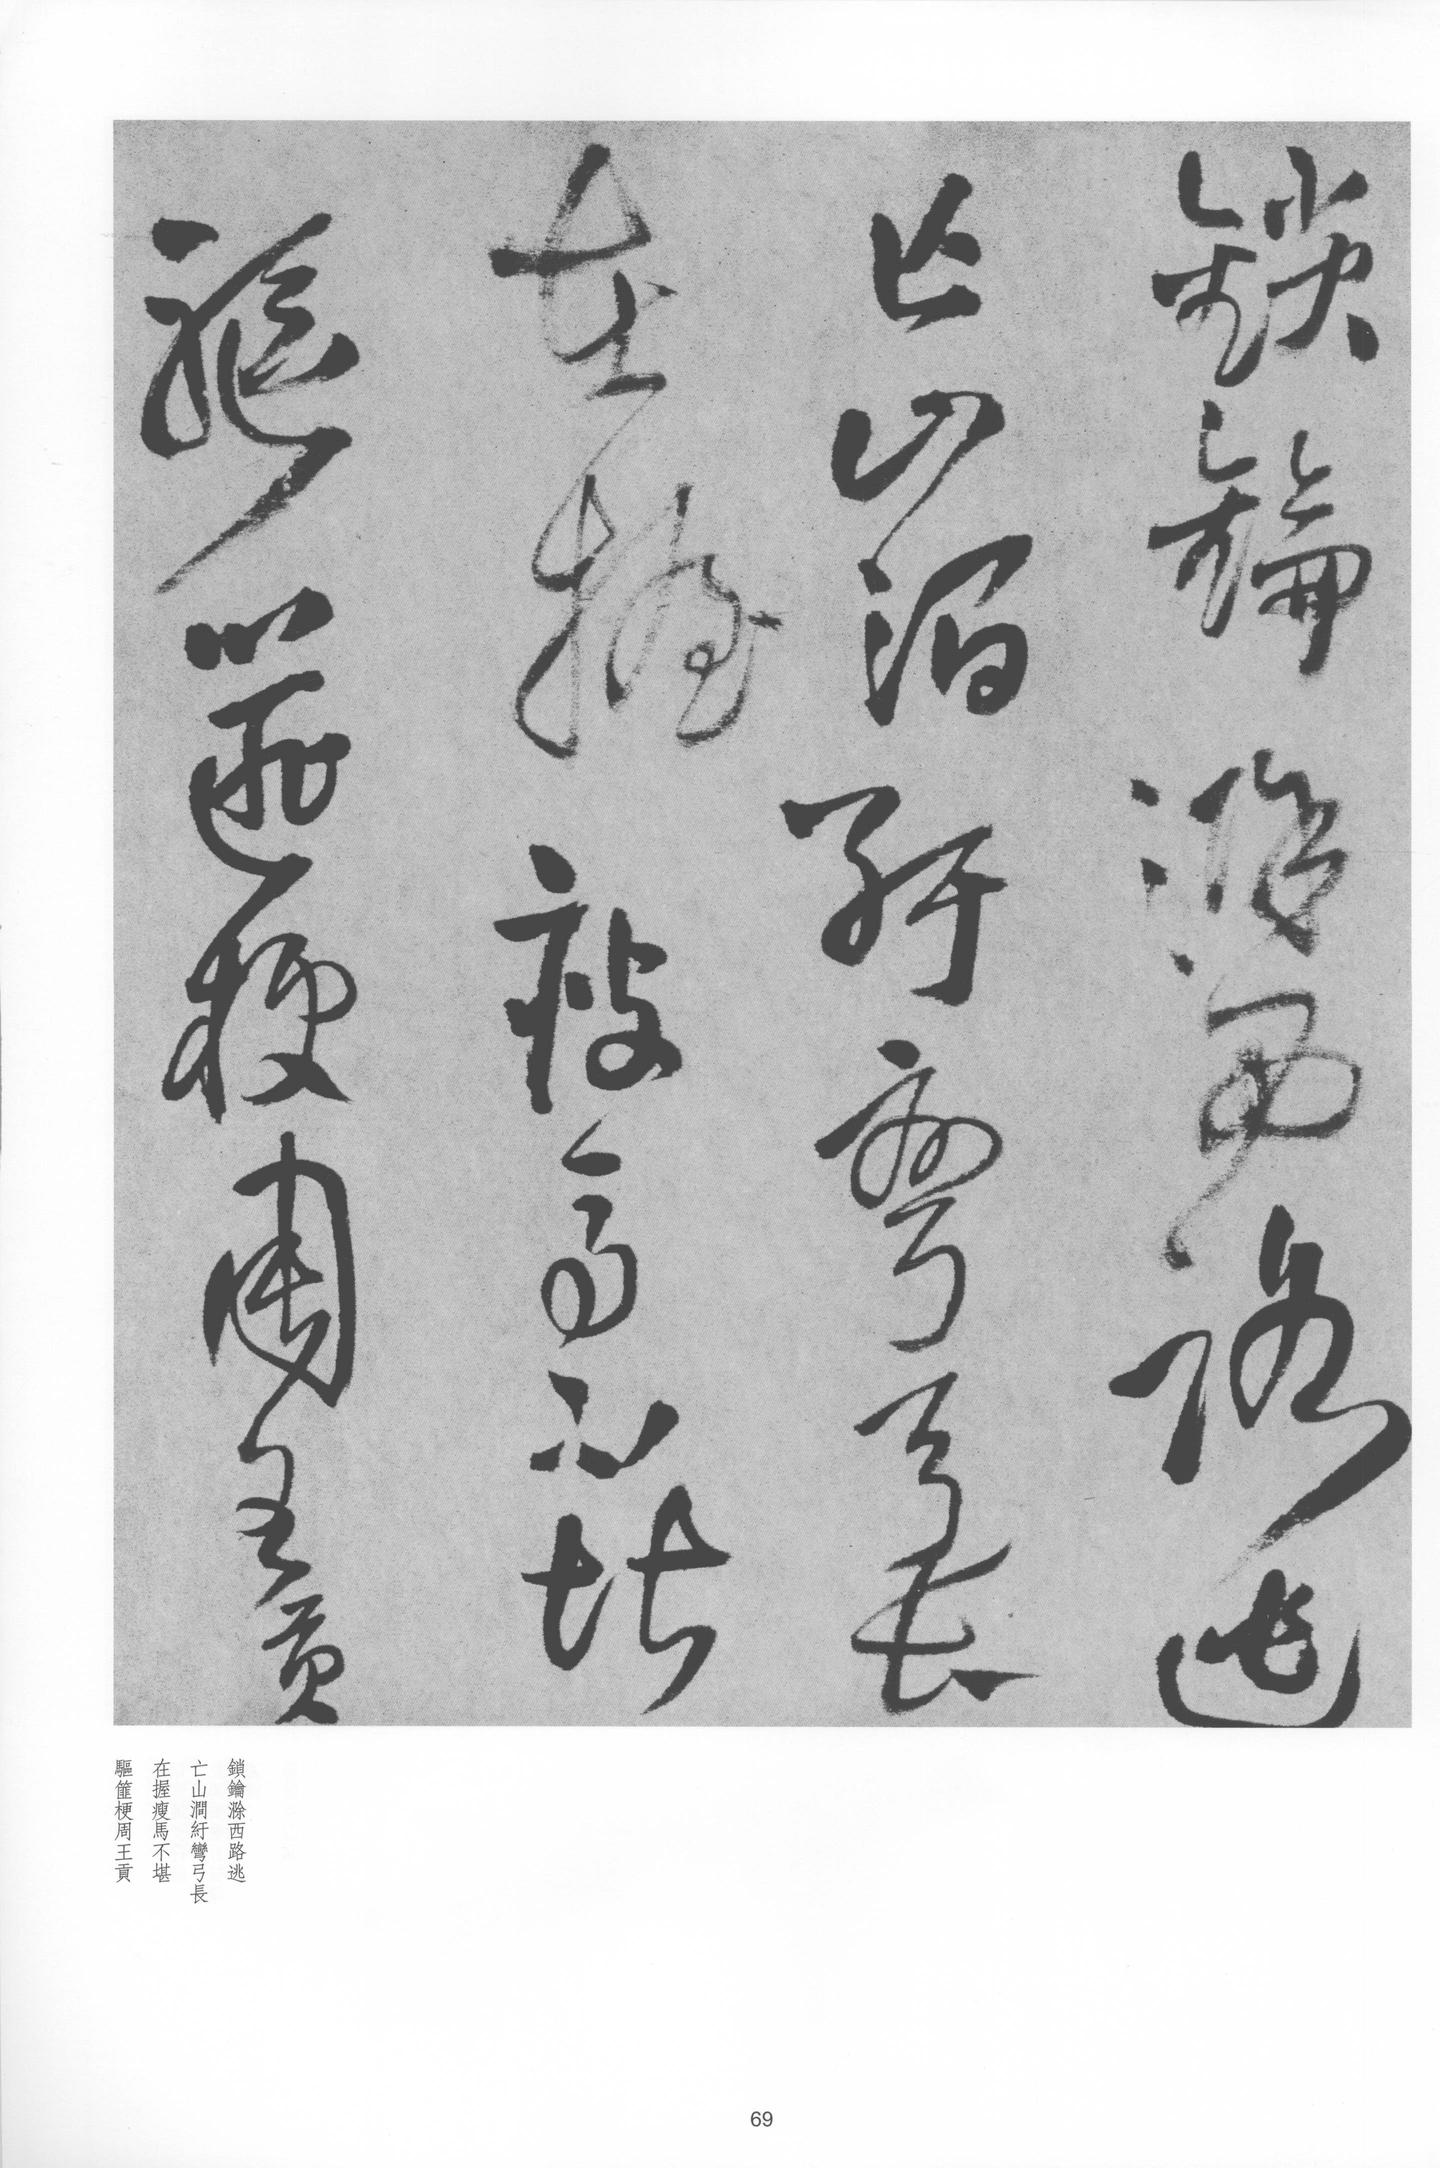 鎖鑰滁西路逃
亡山澗紆彎弓長
在握瘦馬不堪
驅篚梗周王貢
鎖鑰滁西路逃
亡山澗紆彎弓長
在握瘦馬不堪
驅篚梗周王貢
69